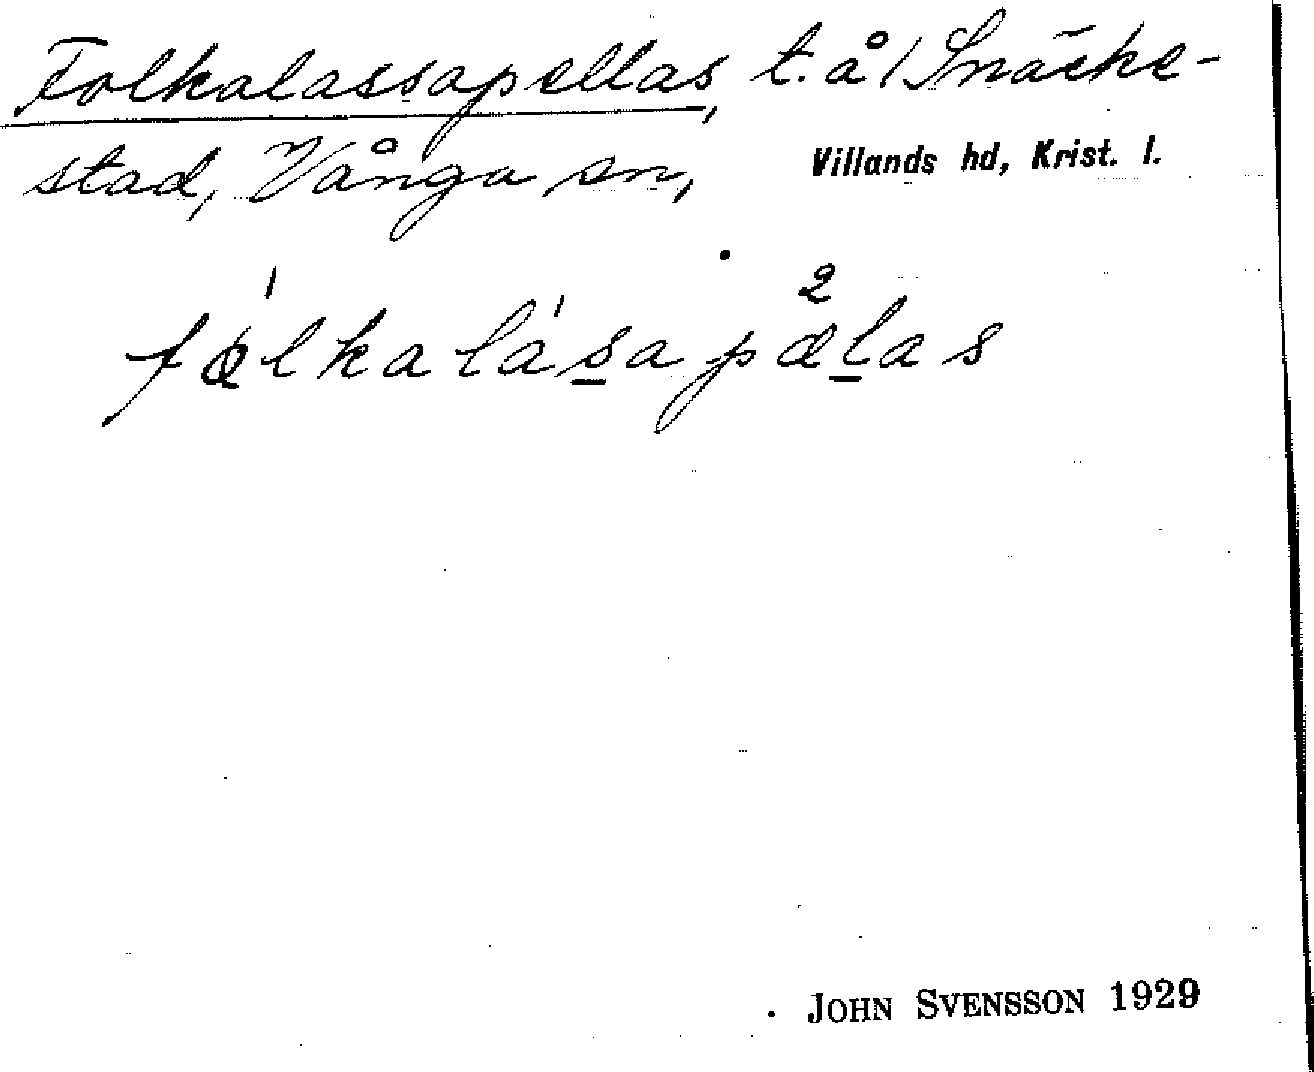 Folkalassapellas, t. å / Snäcke-
stad, Vånga sn, Villands hd, Krist. l.
fǫ́lkalásapæ²las
JOHN SVENSSON 1929